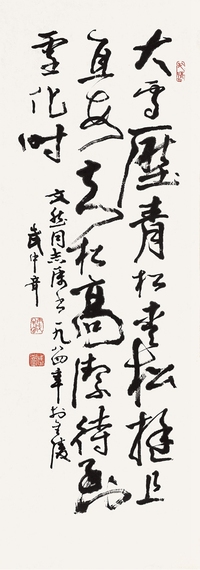 大雪压青松青松挺且
直要知松高洁待到
雪化时
文然同志属书一九八四年于金陵
武中奇